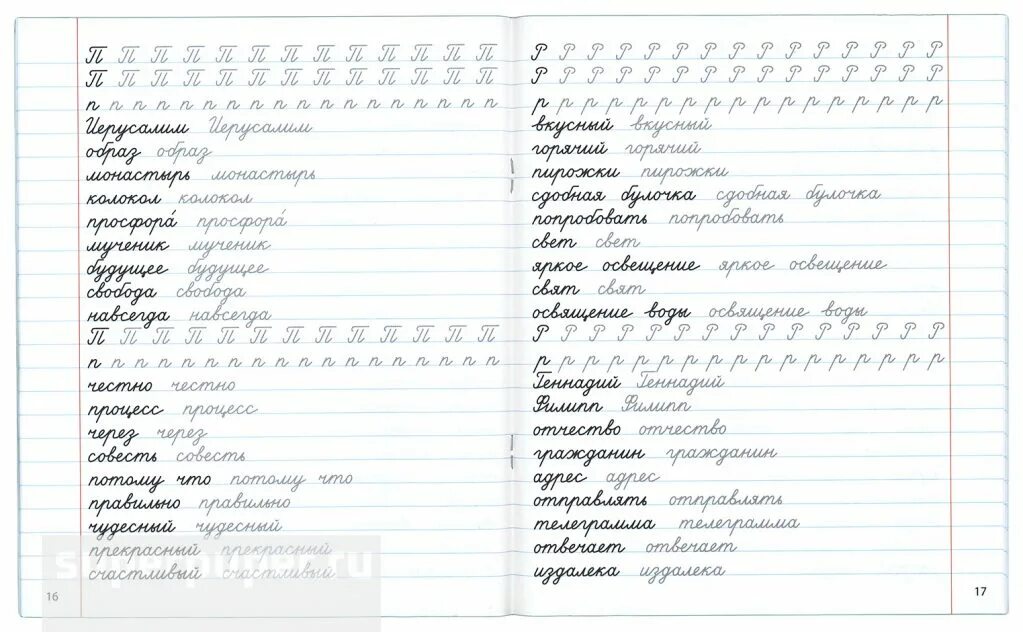 П П П П П П П П П П П П П
П П П П П П П П П П П П П
п п п п п п п п п п п п п п п п п п
Иерусалим Иерусалим
образ образ
монастырь монастырь
колокол колокол
просфора́ просфора́
мученик мученик
будущее будущее
свобода свобода
навсегда навсегда
П П П П П П П П П П П П П
п п п п п п п п п п п п п п п п п п
честно честно
процесс процесс
через через
совесть совесть
потому что потому что
правильно правильно
чудесный чудесный
прекрасный прекрасный
счастливый счастливый
16
Р Р Р Р Р Р Р Р Р Р Р Р Р Р
Р Р Р Р Р Р Р Р Р Р Р Р Р Р
р р р р р р р р р р р р р р р р р
вкусный вкусный
горячий горячий
пирожки пирожки
сдобная булочка сдобная булочка
попробовать попробовать
свет свет
яркое освещение яркое освещение
свят свят
освящение воды освящение воды
Р Р Р Р Р Р Р Р Р Р Р Р Р Р
р р р р р р р р р р р р р р р р р
Геннадий Геннадий
Филипп Филипп
отчество отчество
гражданин гражданин
адрес адрес
отправлять отправлять
телеграмма телеграмма
отвечает отвечает
издалека издалека
17